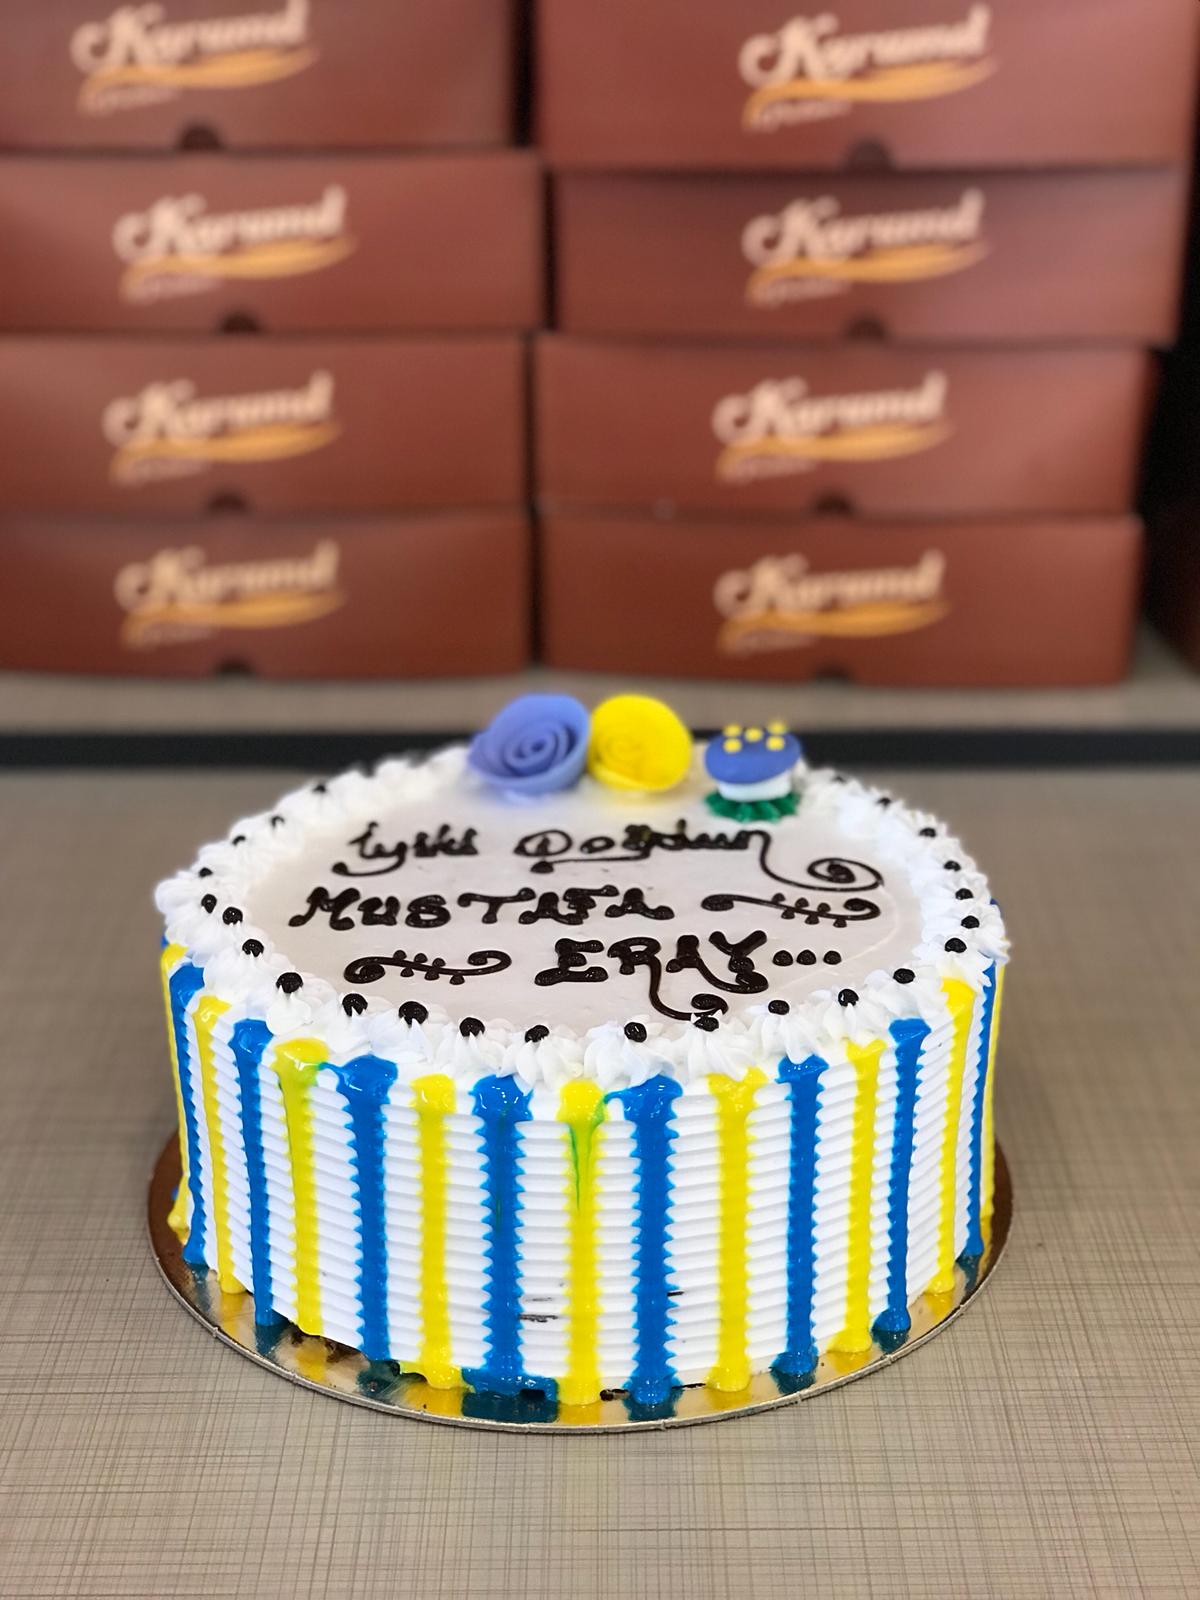 Karamel
Karamel
Karamel
Karamel
Karamel
Karamel
Karamel
Karamel
İyiki Doğdun
MUSTAFA
ERAY...